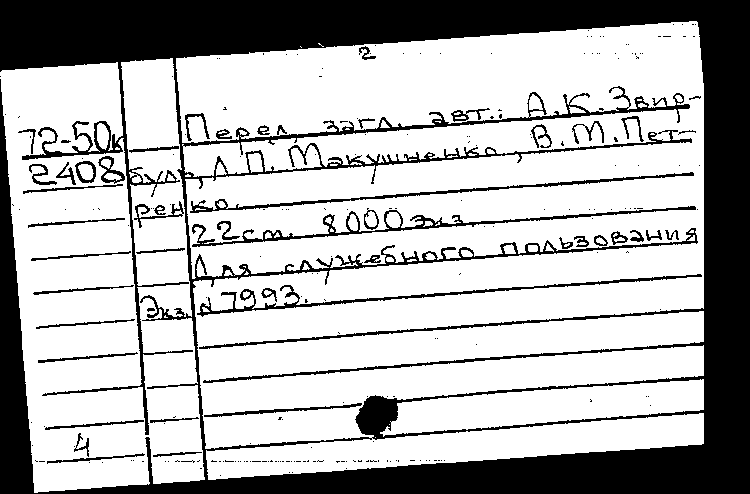 2
72-50к Перед загл. авт.: А.К. Звир-
2408 буль, Л.П. Макушненко, В.М. Пет-
ренко.
22 см. 8000 экз.
Для служебного пользования
Экз. N 7993.
4